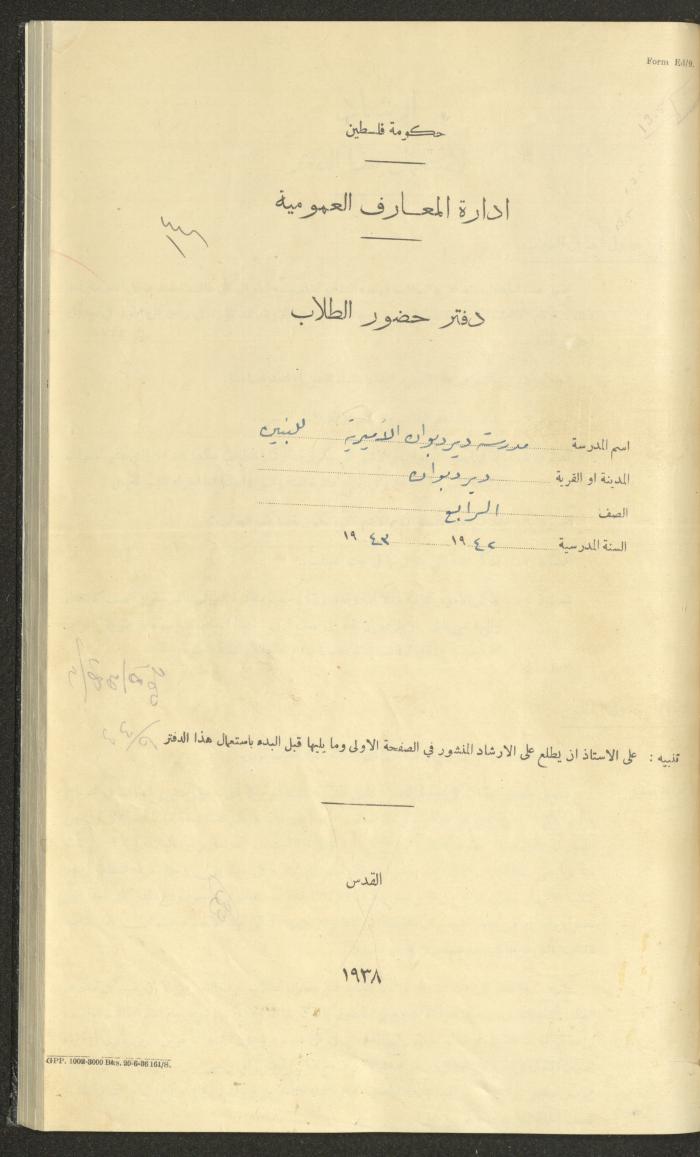 Form Ed/9.
حكومة فلسطين
ادارة المعارف العمومية
دفتر حضور الطلاب
اسم المدرسة مدرسة دير ديوان الأميرية للبنين
المدينة او القرية دير ديوان
الصف الرابع
السنة المدرسية ١٩٤٢ ١٩٤٣
تنبيه : على الاستاذ ان يطلع على الارشاد المنشور في الصفحة الاولى وما يليها قبل البدء باستعمال هذا الدفتر
القدس
١٩٣٨
GPP. 1002-3000 Bks. 20-6-36 161/S.